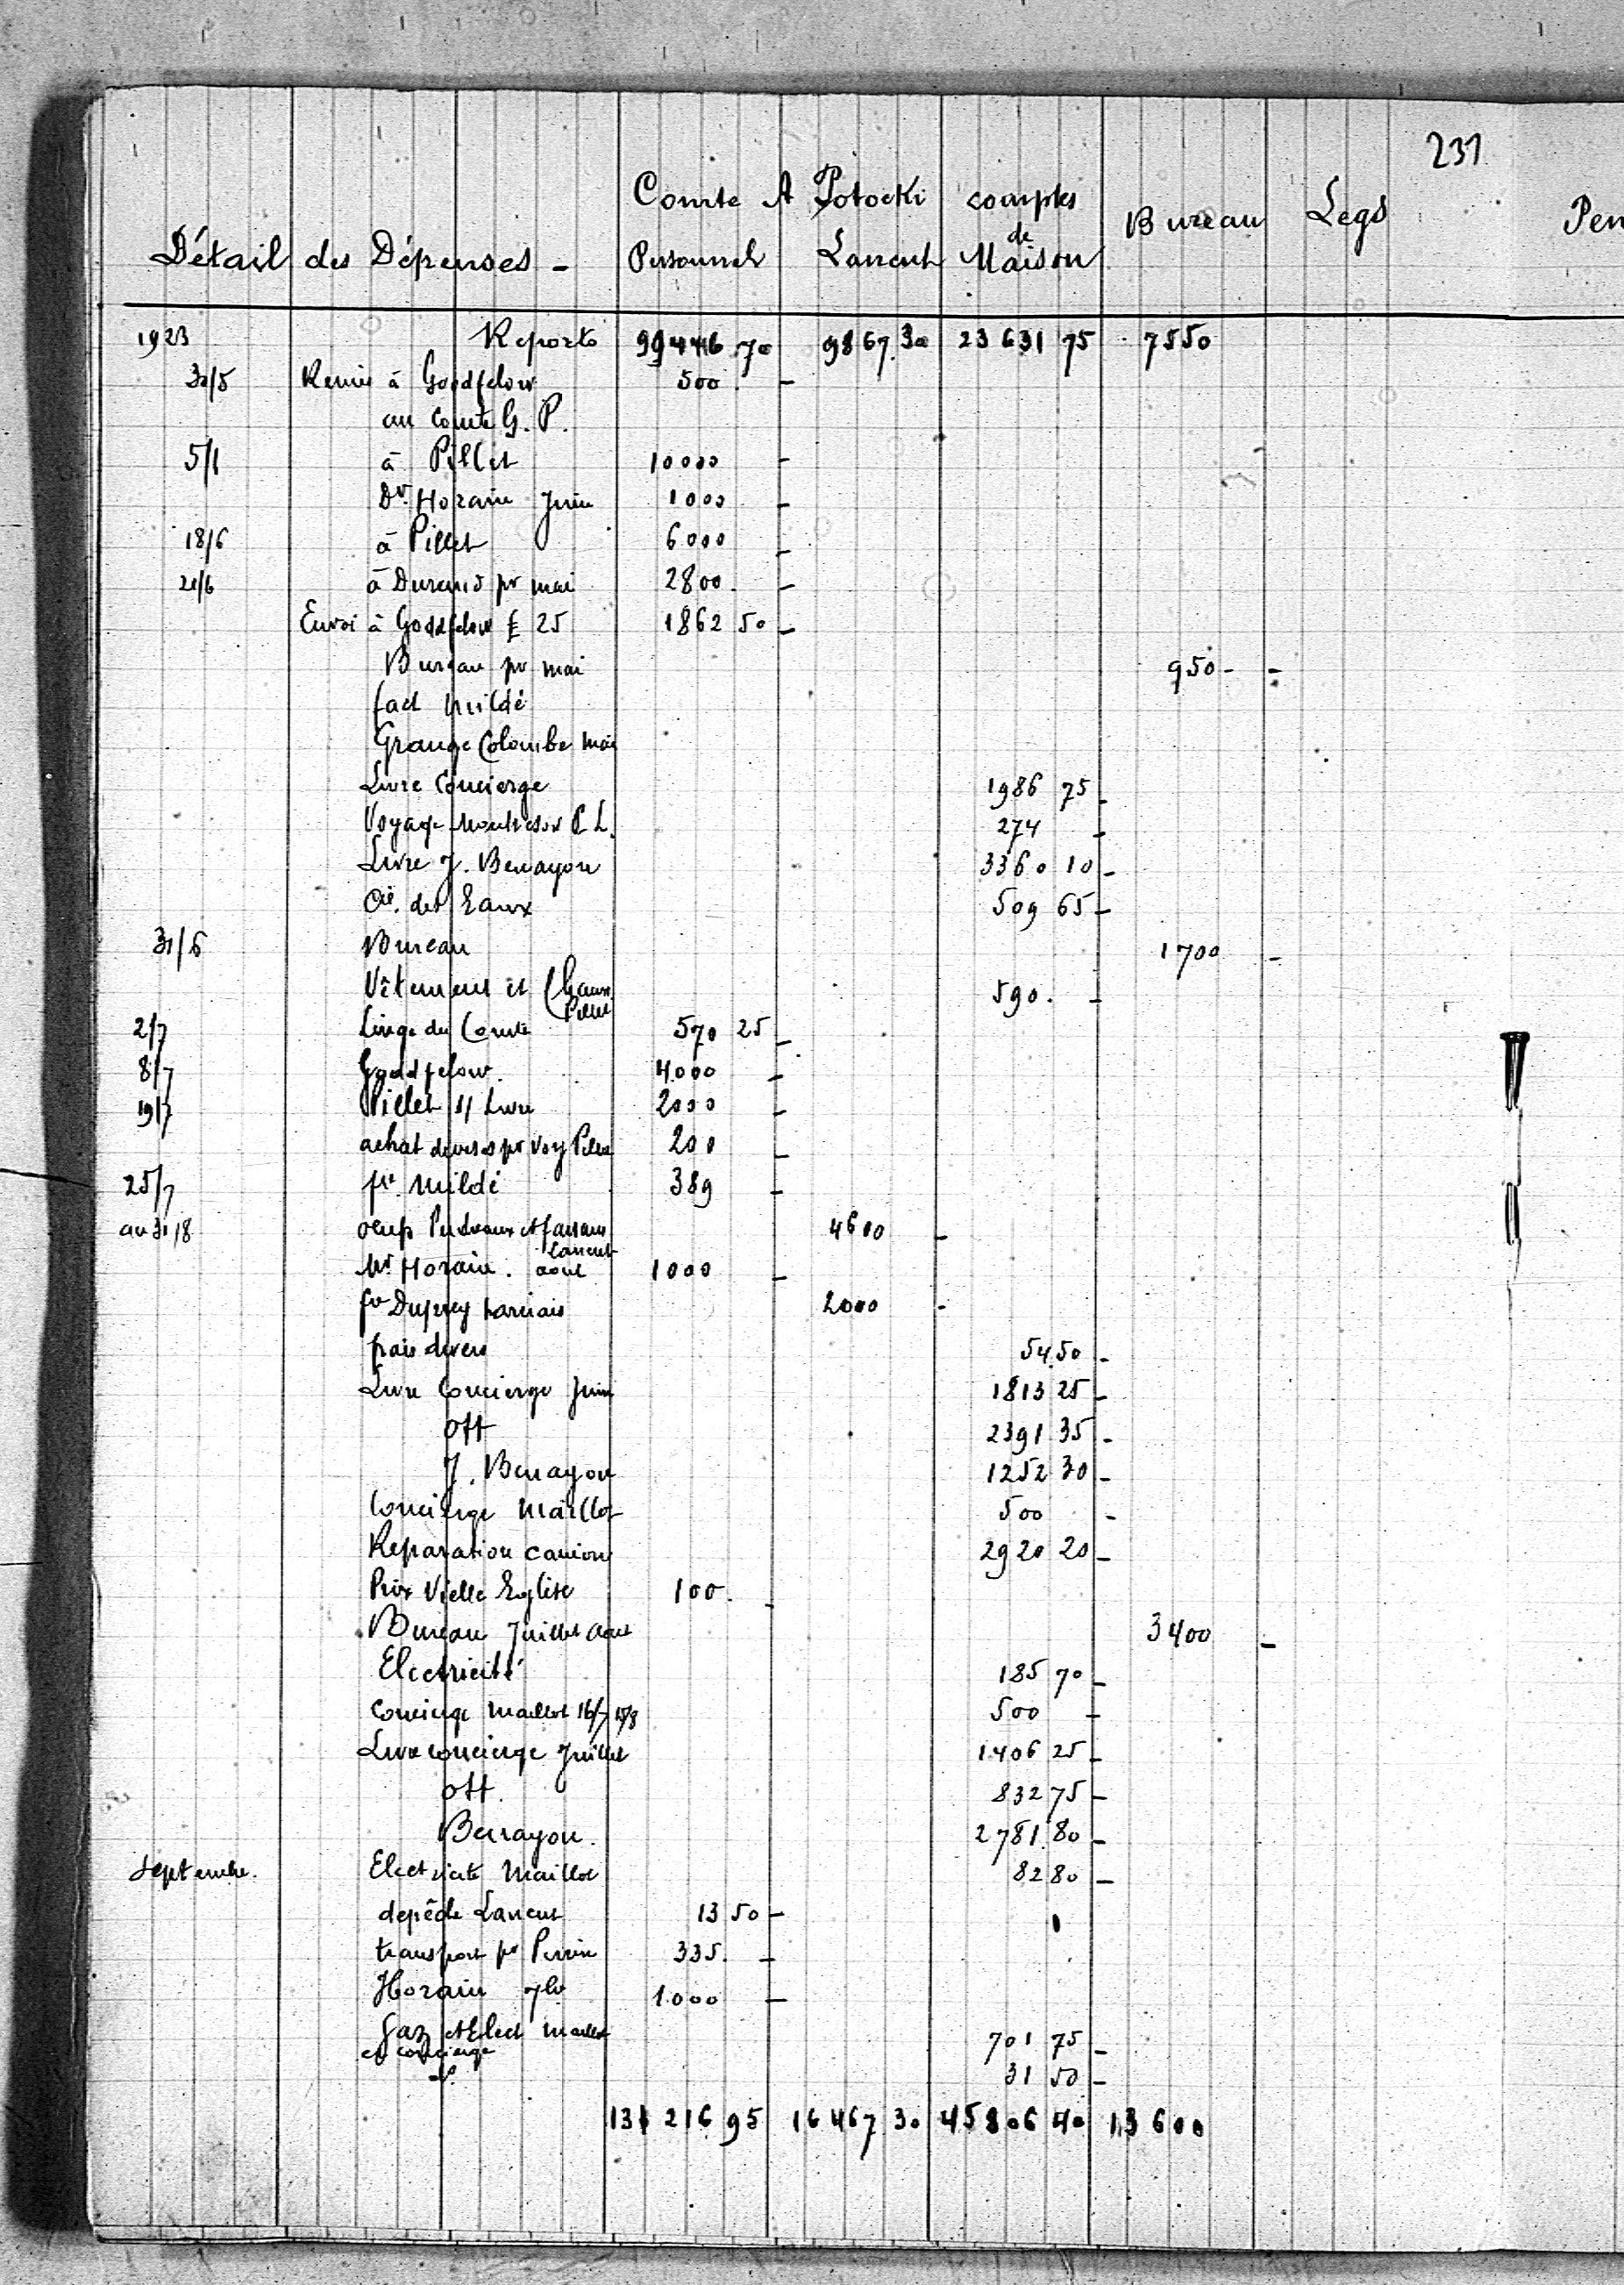 231
Comte A Potocki comptes de Bureau Legs Pen
Détail des Dépenses - Personnel Lancut Maison
1923 Reports 99446 70 9867.30 23631 75 7550
30/5 Remis à Goodfelow 500 -
au comte G. P.
5/1 à Pillet 10000 -
Dr. Horain Juin 1000 -
18/6 à Pillet 6000 -
21/6 à Durand pr mai 2800. -
Envoi à Goodfelow £ 25 1862 50 -
Bureau pr mai 950 - -
fact Mildé
Grange Colombe mai
Livre Concierge 1986 75 -
Voyage Montresor P. L. 274 -
Livre J. Benayon 3360 10 -
Cie. des Eaux 509 65 -
31/5 Bureau 1700 -
Vêtement et Chauss. Pillet 590. -
2/7 Linge du Comte 570 25 -
8/7 Goodfelow. 4000 -
19/7 Pillet s/ Livre 2000 -
achat divers pr voy Pillet 200 -
25/7 fre. Mildé 389 -
au 31/8 oeufs Perdreaux et faisans Lancut 4600 -
Mr Horain. aout 1000 -
fre harnais 2000 -
frais divers 54.50 -
Livre Concierge Juin 1813 25 -
Ott 2391 35 -
J. Benayon 1252 30 -
Concierge Maillot 500 -
Reparation camion 2920 20 -
Prix Vielle Eglise 100. -
Bureau Juillet Aout 3400 -
Electricité 185 70 -
Concierge Maillot 16/7 15/8 500 -
Livre concierge Juillet 1406 25 -
Ott. 832 75 -
Benayon. 2781 80 -
Septembre. Electricité Maillot 82 80 -
depêche Lancut 13 50 -
transport pr Perrin 335. -
Horain 7bre 1.000 -
Gaz et Elect Maillot 701 75 -
et concierge
31 50 -
131 216 95 16 467 30 45806 40 13 600